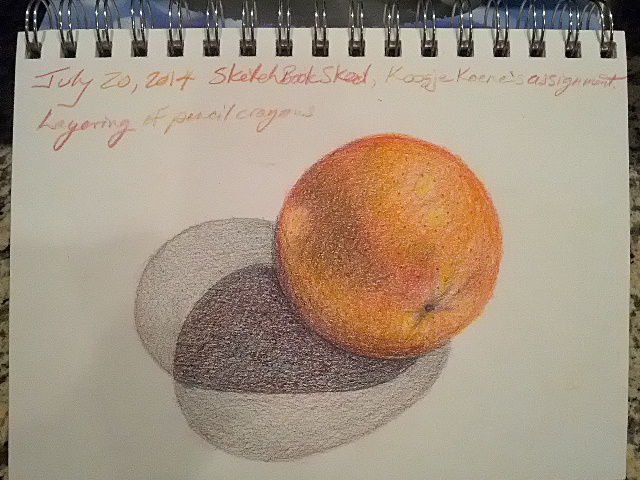 July 20, 2014 SketchBookSkool, Koosje Koene's assignment
Layering of pencil crayons